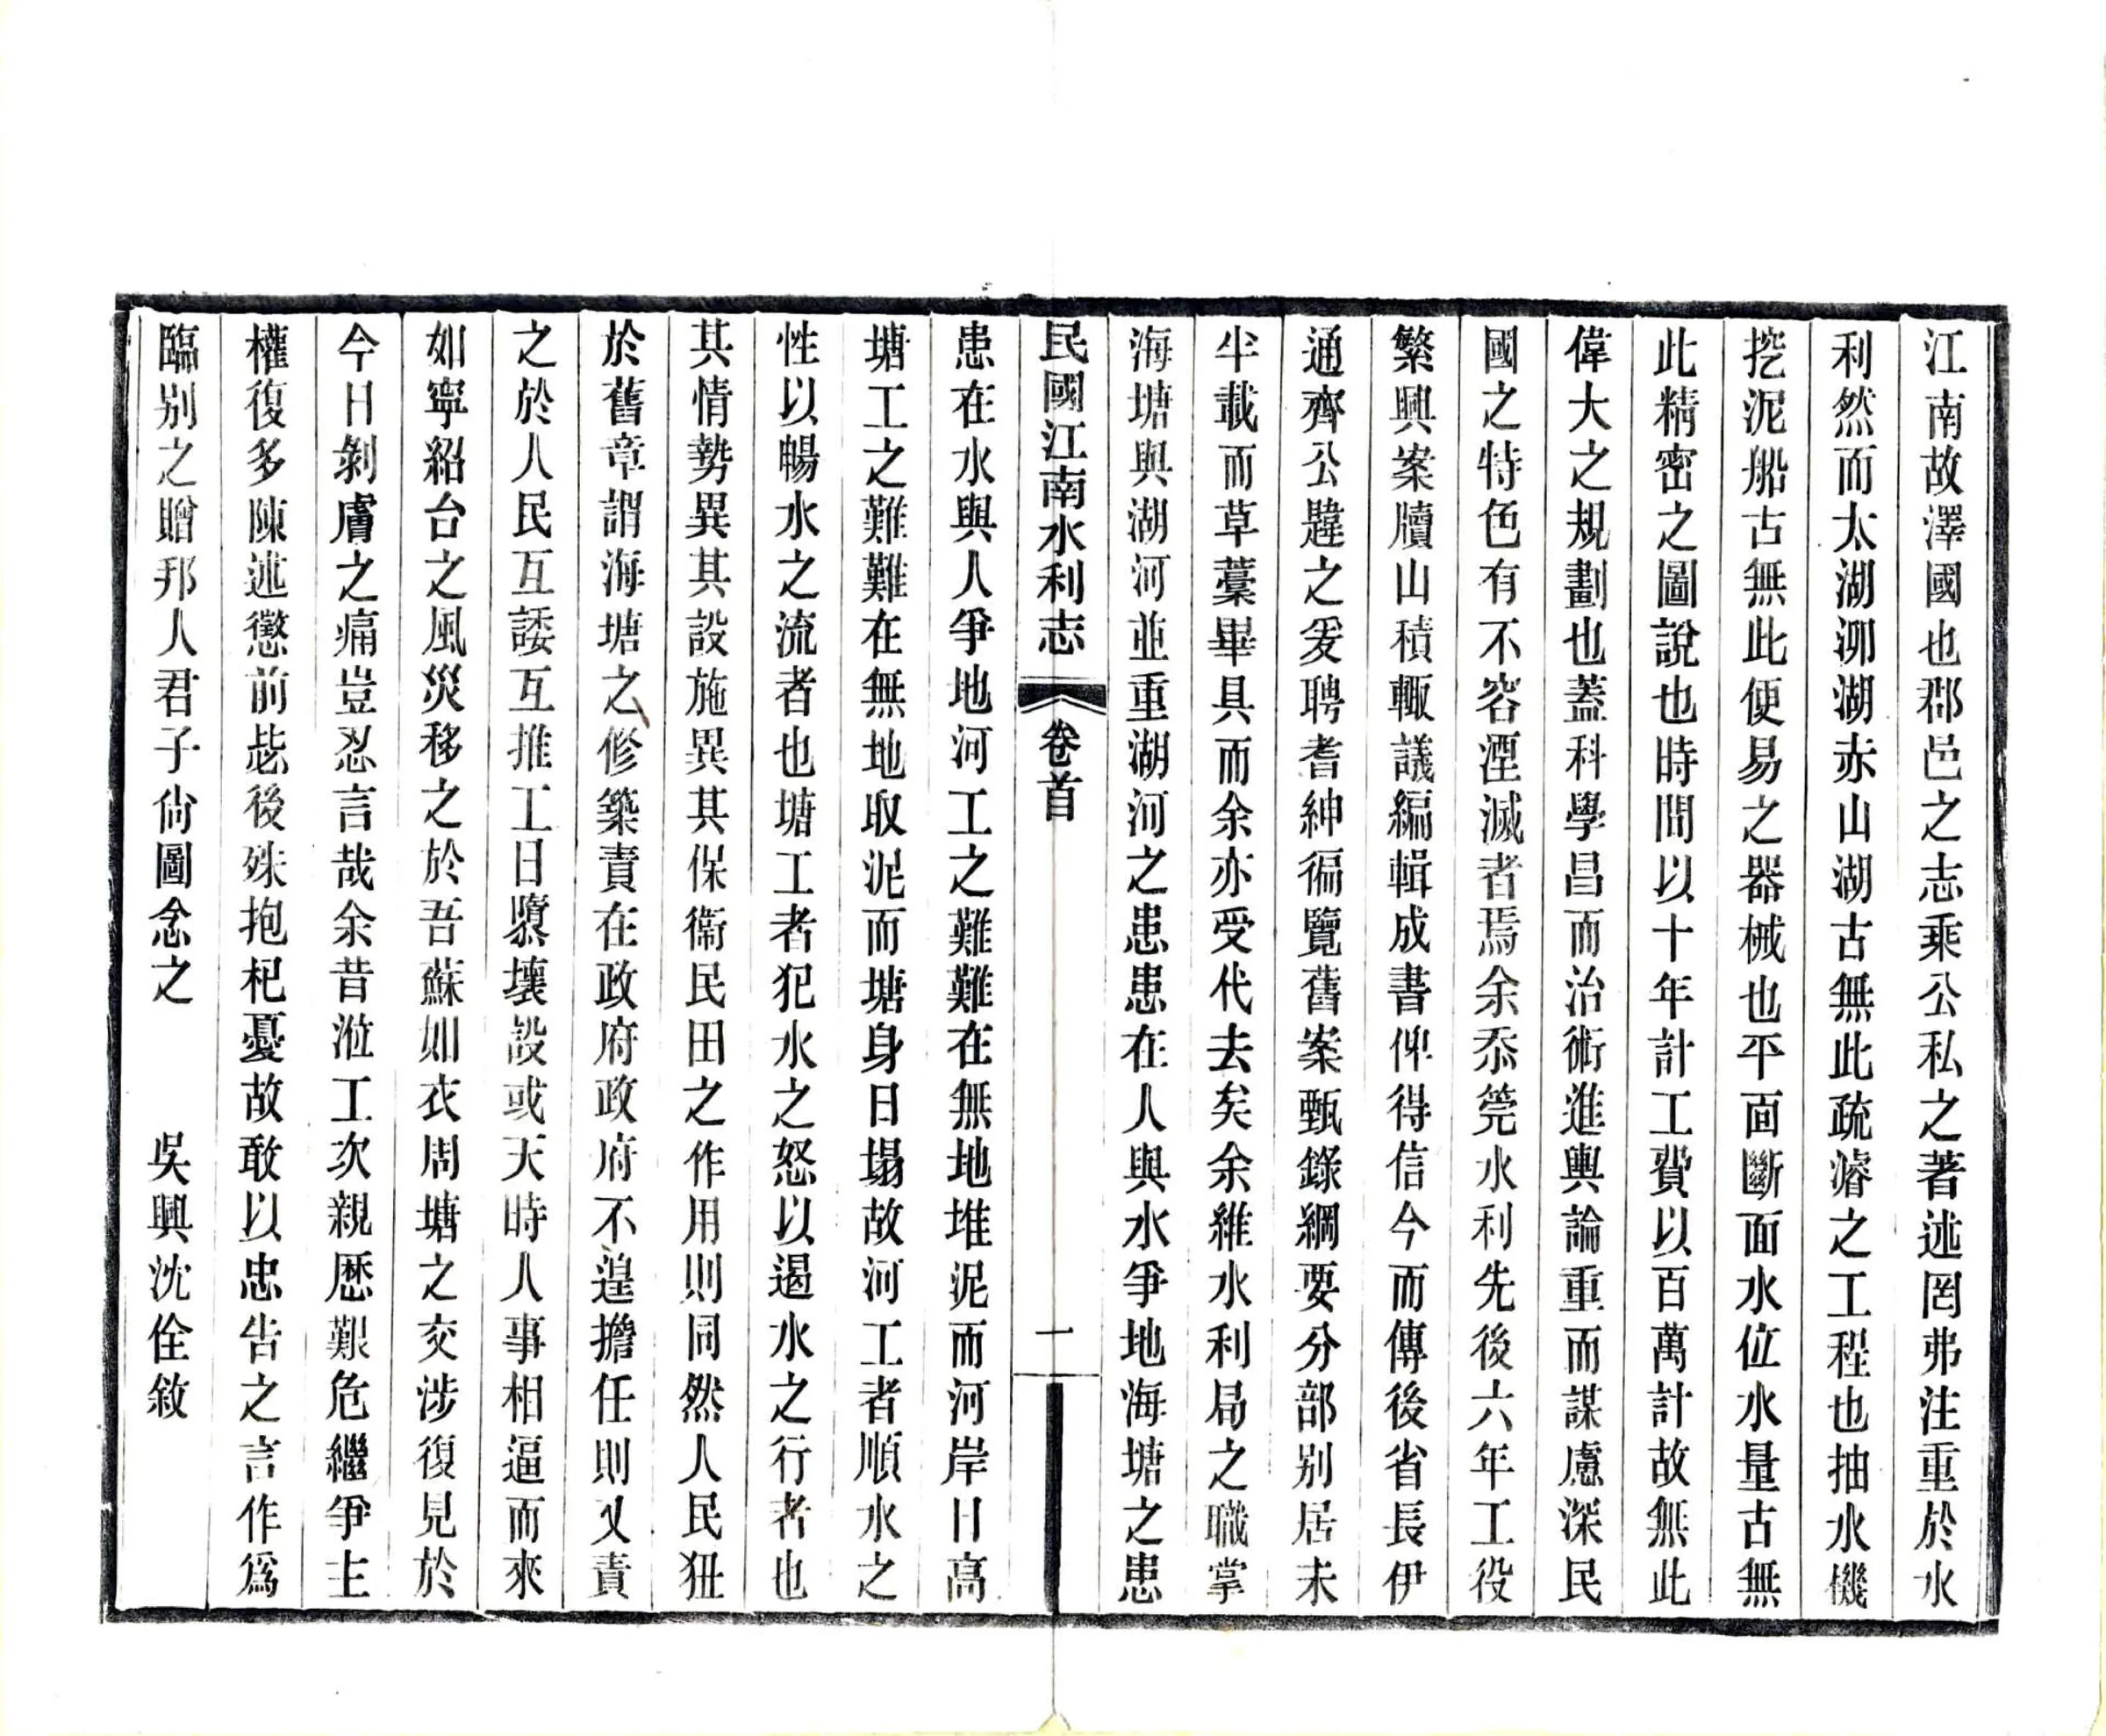 江南故澤國也郡邑之志乘公私之著述罔弗注重於水
利然而太湖泖湖赤山湖古無此疏濬之工程也抽水機
挖泥船古無此便易之器械也平面斷面水位水量古無
此精密之圖說也時間以十年計工費以百萬計故無此
偉大之規劃也蓋科學昌而治術進輿論重而謀慮深民
國之特色有不容湮滅者焉余忝筦水利先後六年工役
繁興案牘山積輒議編輯成書俾得信今而傳後省長伊
通齊公韙之爰聘耆紳徧覽舊案甄錄綱要分部别居未
半載而草藁畢具而余亦受代去矣余維水利局之職掌
海塘與湖河並重湖河之患患在人與水爭地海塘之患
民國江南水利志 卷首 一
患在水與人爭地河工之難難在無地堆泥而河岸日高
塘工之難難在無地取泥而塘身日塌故河工者順水之
性以暢水之流者也塘工者犯水之怒以遏水之行者也
其情勢異其設施異其保衞民田之作用則同然人民狃
於舊章謂海塘之修築責在政府政府不遑擔任則又責
之於人民互諉互推工日隳壞設或天時人事相逼而來
如寧紹台之風災移之於吾蘇如衣周塘之交涉復見於
今日剝膚之痛豈忍言哉余昔涖工次親歷艱危繼爭主
權復多陳述懲前毖後殊抱杞憂故敢以忠告之言作爲
臨别之贈邦人君子尙圖念之 吳興沈佺敘